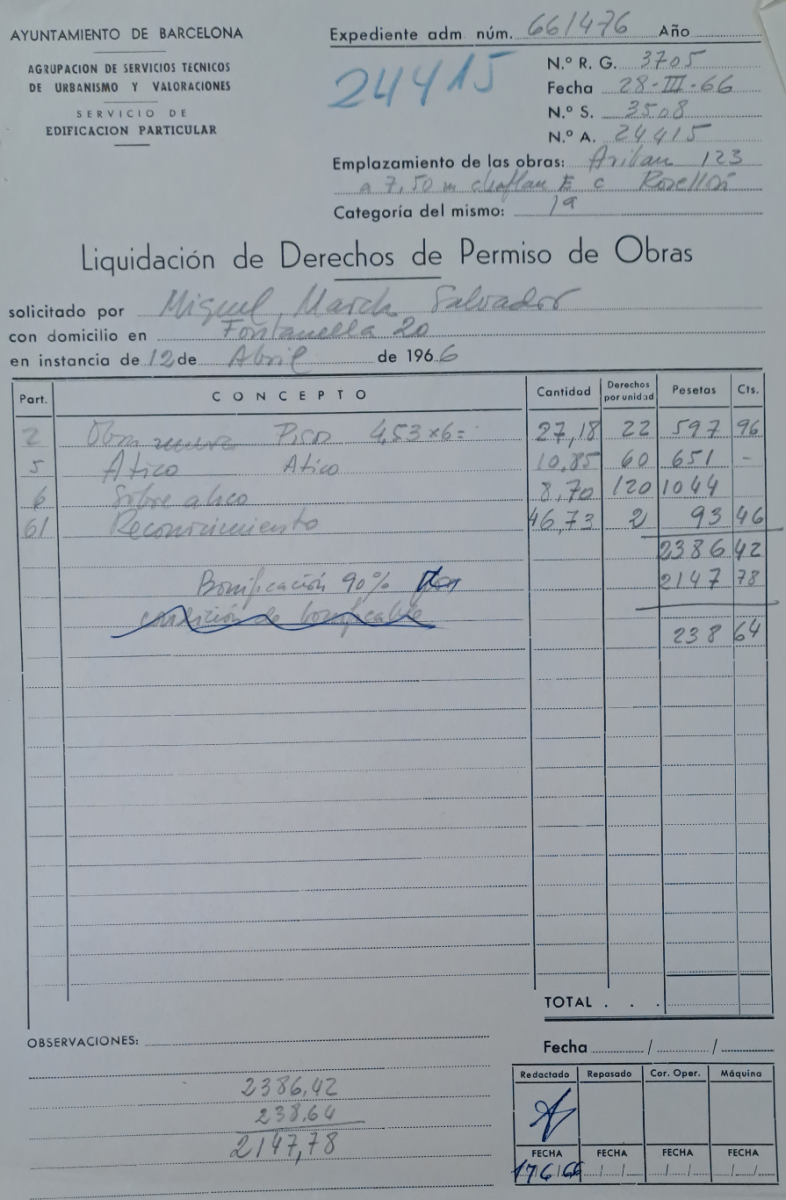 AYUNTAMIENTO DE BARCELONA
AGRUPACION DE SERVICIOS TECNICOS
DE URBANISMO Y VALORACIONES
SERVICIO DE
EDIFICACION PARTICULAR
Expediente adm. núm. 661476 Año
24415
N.º R. G. 3705
Fecha 28-III-66
N.º S. 3508
N.º A. 24415
Emplazamiento de las obras: 123
a 7,50 m chaflan E c Rosellón
Categoría del mismo: 1ª
Liquidación de Derechos de Permiso de Obras
solicitado por Miguel March Salvador
con domicilio en Fontanella 20
en instancia de 12 de Abril de 1966
Part. CONCEPTO Cantidad Derechos por unidad Pesetas Cts.
2 Obra nueva Piso 4,53 x 6 = 27,18 22 597 96
5 Atico Atico 10,85 60 651 -
6 Sobre atico 8,70 120 1044
61 Reconocimiento 46,73 2 93 46
2386 42
Bonificación 90% 2147 78
condición de bonificable
238 64
TOTAL . . .
OBSERVACIONES:
2386,42
238,64
2147,78
Fecha / /
Redactado Repasado Cor. Oper. Máquina
FECHA FECHA FECHA FECHA
17 6 66 / / / / / /